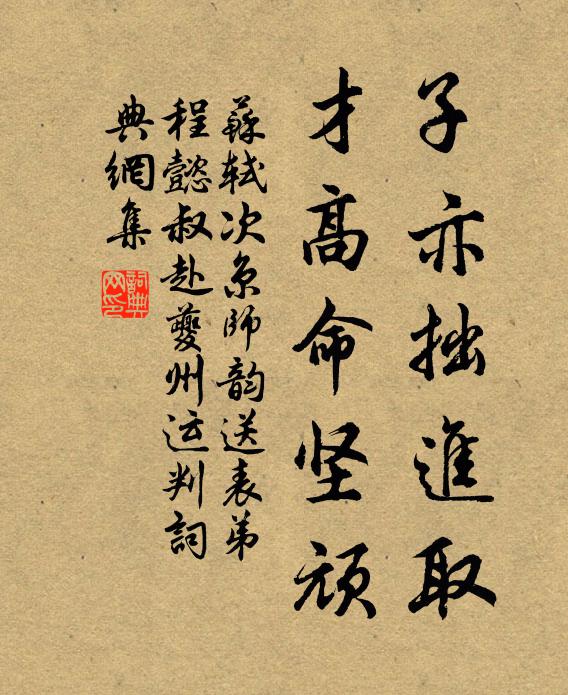 子亦拙進取
才高命坚頑
蘇軾次京師韵送表弟
程懿叔赴夔州运判詞
典網集
詞典网印